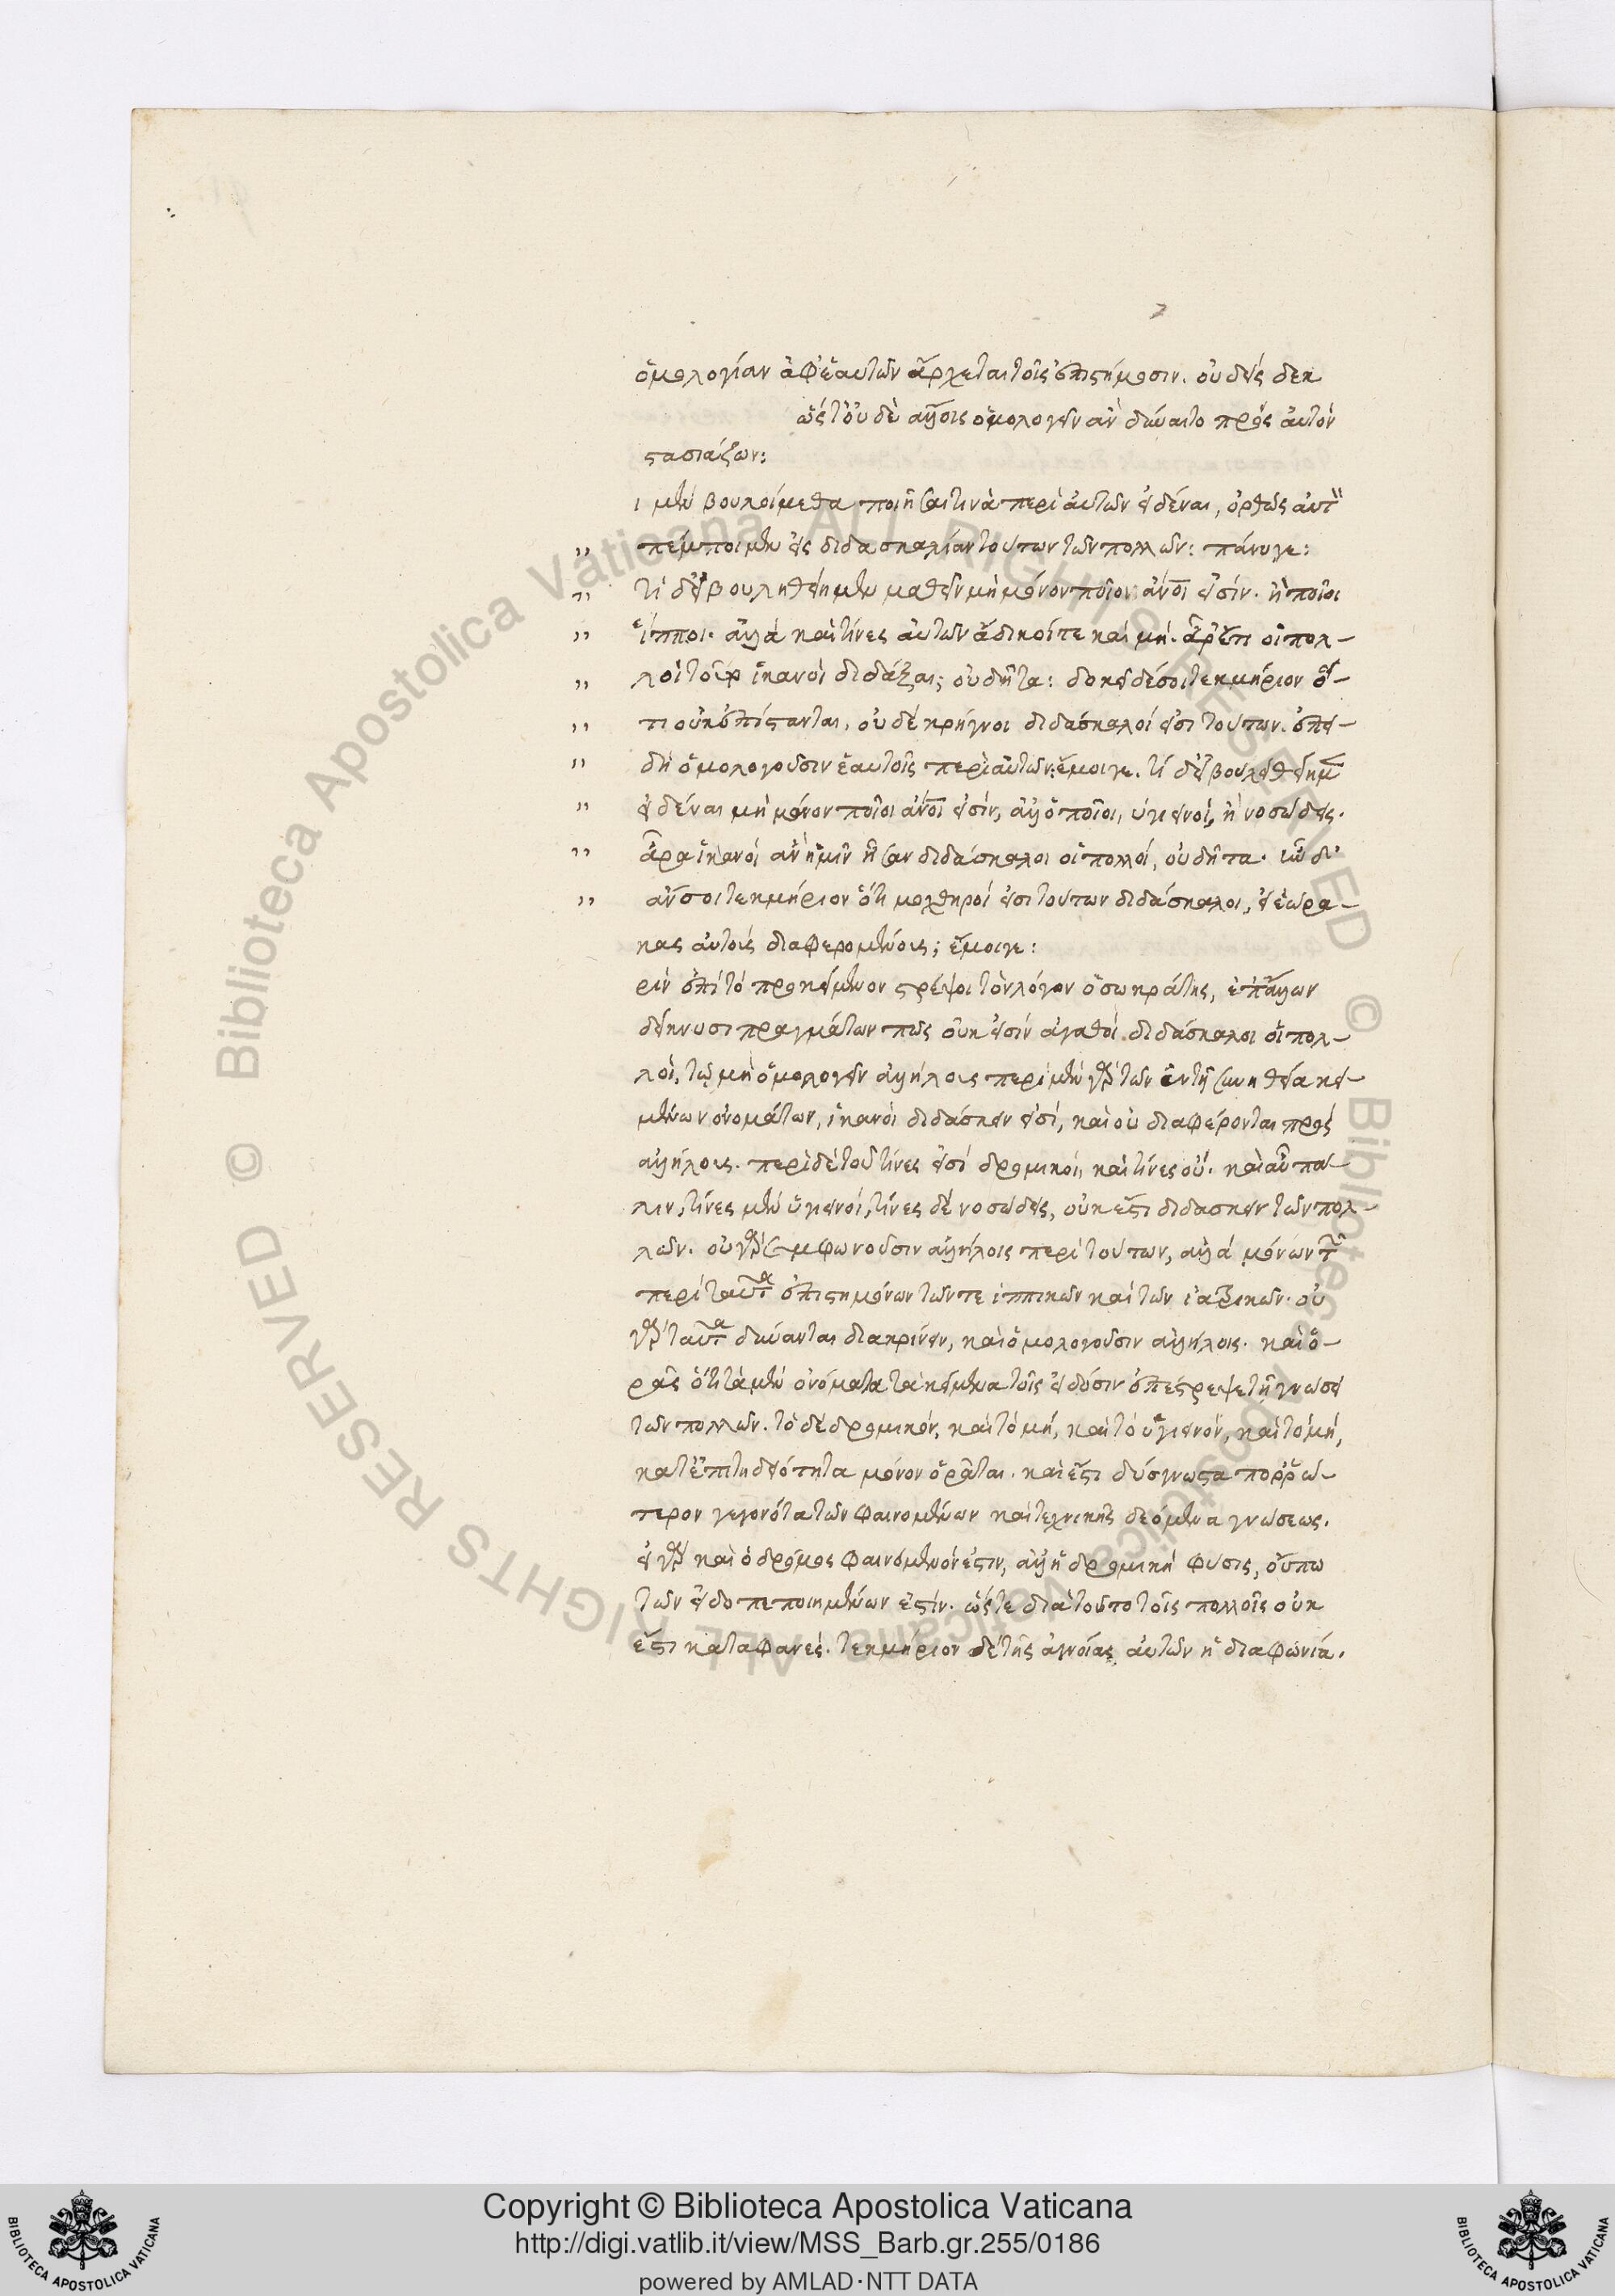 ὁμολογίαν ἀφ' ἑαυτῶν ἄρχεται τοῖς ἐπιστήμοσιν. οὐδεὶς δεκ
ὥστ' οὐδὲ ἄλλοις ὁμολογεῖν ἂν δύναιτο πρὸς αὐτὸν
στασιάζων:
ι μὲν βουλοίμεθα ποιῆσαι τινὰ περὶ αὐτῶν εἰδέναι, ὀρθῶς αὐτ
" πέμποιμεν εἰς διδασκαλίαν τούτων τῶν πολλῶν: πάνυγε:
" τί δ' εἰ βουληθείημεν μαθεῖν μὴ μόνον ποῖοι ἄνοι εἰσίν. ἢ ποῖοι
" ἵπποι. ἀλλὰ καὶ τίνες αὐτῶν
" λοὶ ἱκανοὶ διδάξαι; οὐδῆτα: δοκεῖ δέ σοι τεκμήριον ὅ-
" τι οὐκ ἐπίστανται, οὐδὲ κρήγυοι διδάσκαλοί εἰσι τούτων. ἐπει-
" δὴ ὁμολογοῦσιν ἑαυτοῖς περὶ αὐτῶν: ἔμοιγε. τί δ' εἰ βουληθείημ
" εἰδέναι μὴ μόνον ποῖοι ἄνοι εἰσίν, ἀλλ' ὁποῖοι, ὑγιεινοί, ἢ νοσώδεις.
" ἆρα ἱκανοὶ ἂν ἡμῖν ἦσαν διδάσκαλοι οἱ πολλοί, οὐδῆτα. ἦν δ'
" ἄν σοι τεκμήριον ὅτι μοχθηροί εἰσι τούτων διδάσκαλοι, εἰ ἑώρα-
κας αὐτοὺς διαφερομένους; ἔμοιγε:
ριν ἐπὶ τὸ προκείμενον στρέψοι τὸν λόγον ὁ σωκράτης, ἐπ' ἄλλων
δείκνυσι πραγμάτων πῶς οὐκ εἰσὶν ἀγαθοὶ διδάσκαλοι οἱ πολ-
λοὶ, τῷ μὴ ὁμολογεῖν ἀλλήλοις περὶ μὲν γὰρ τῶν ἐν τῇ συνηθείᾳ κει-
μένων ὀνομάτων, ἱκανοὶ διδάσκειν εἰσί, καὶ οὐ διαφέρονται πρὸς
ἀλλήλους. περὶ δὲ τοῦ τίνες εἰσὶ δρομικοί, καὶ τίνες οὔ. καὶ αὖ πά-
λιν, τίνες μὲν ὑγιεινοί, τίνες δὲ νοσώδεις, οὐκ ἔστι διδάσκειν τῶν πολ-
λῶν. οὐ γὰρ συμφωνοῦσιν ἀλλήλοις περὶ τούτων, ἀλλὰ μόνων τῶν
περὶ ταῦτα ἐπιστημόνων τῶν τε ἱππικῶν καὶ τῶν ἰατρικῶν. οὐ
γὰρ ταῦτα δύνανται διακρίνειν, καὶ ὁμολογοῦσιν ἀλλήλοις. καὶ ὁ-
ρᾷς ὅτι τὰ μὲν ὀνόματα τὰ κείμενα τοῖς εἴδεσιν ἐπέτρεψε τῇ γνώσει
τῶν πολλῶν. τὸ δὲ δρομικόν, καὶ τὸ μή, καὶ τὸ ὑγιεινόν, καὶ τὸ μή,
κατ' ἐπιτηδειότητα μόνον ὁρᾶται. καὶ ἔστι δύσγνωστα πορρω-
τερον γεγονότα τῶν φαινομένων καὶ τεχνικῆς δεόμενα γνώσεως.
εἰ γὰρ καὶ ὁ δρόμος φαινόμενόν ἐστιν, ἀλλ' ἡ δρομικὴ φύσις, οὔπω
τῶν εἰδοπεποιημένων ἐστίν. ὥστε διὰ τοῦτο τοῖς πολλοῖς οὐκ
ἔστι καταφανές. τεκμήριον δὲ τῆς ἀγνοίας αὐτῶν ἡ διαφωνία.
© Biblioteca Apostolica Vaticana ALL RIGHTS RESERVED © Biblioteca Apostolica Vaticana ALL RIGHTS RESERVED
Copyright © Biblioteca Apostolica Vaticana
http://digi.vatlib.it/view/MSS_Barb.gr.255/0186
powered by AMLAD·NTT DATA
BIBLIOTECA APOSTOLICA VATICANA
BIBLIOTECA APOSTOLICA VATICANA